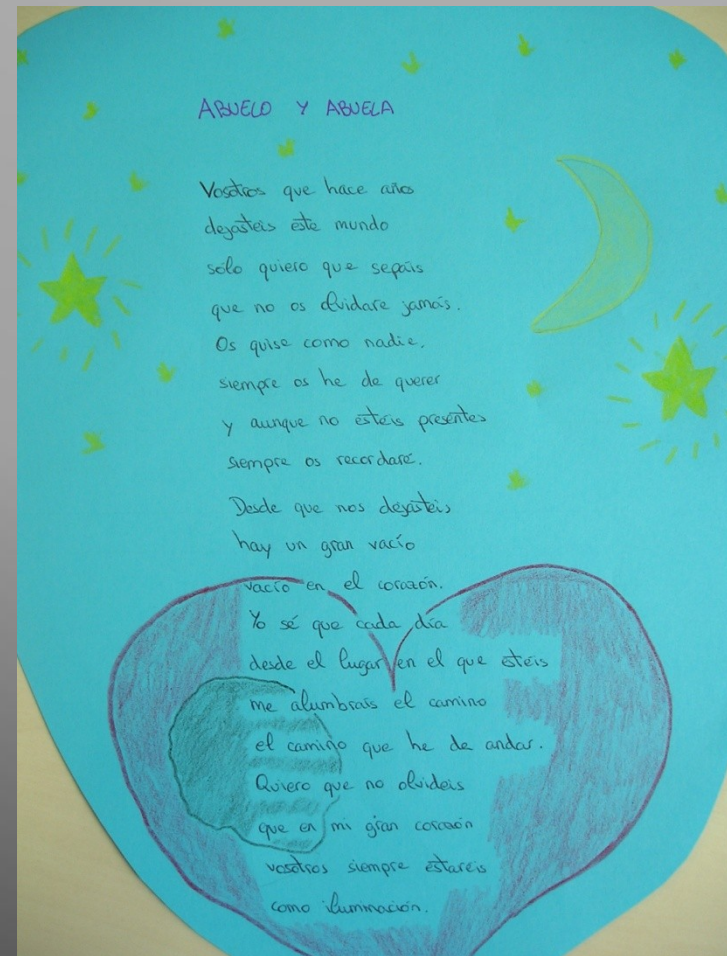 ABUELO Y ABUELA
Vosotros que hace años
dejásteis este mundo
sólo quiero que sepáis
que no os olvidare jamás.
Os quise como nadie,
siempre os he de querer
y aunque no estéis presentes
siempre os recordaré.
Desde que nos dejásteis
hay un gran vacío
vacío en el corazón.
Yo sé que cada día
desde el lugar en el que estéis
me alumbrais el camino
el camino que he de andar.
Quiero que no olvideis
que en mi gran corazón
vosotros siempre estaréis
como iluminación.